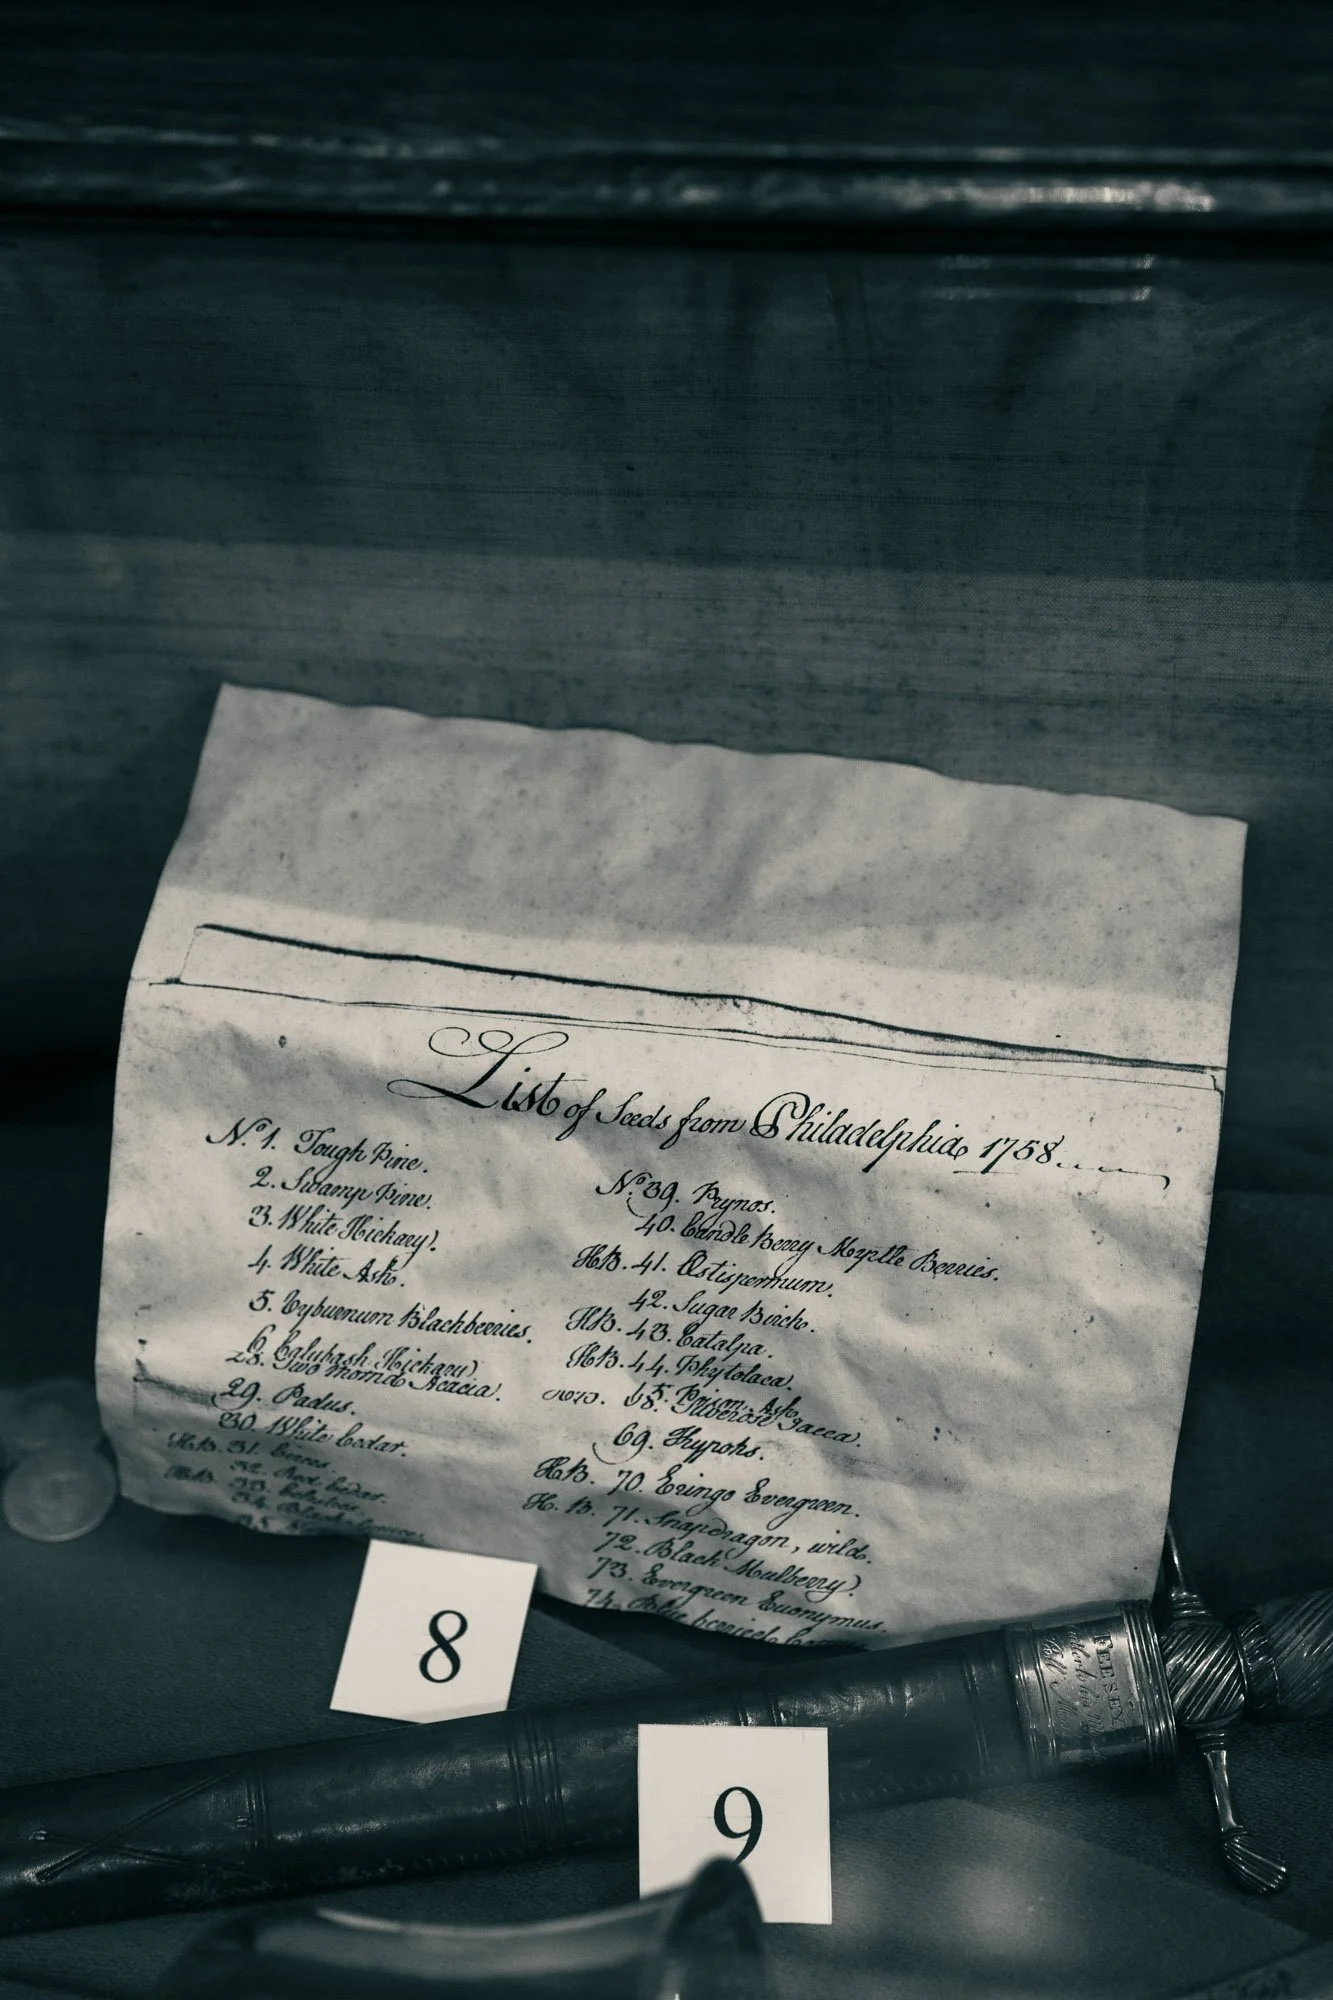 List of Seeds from Philadelphia 1758
No. 1. Tough Pine.
2. Swamp Pine.
3. White Hickary.
4. White Ash.
5. Vyburnum Blackberries.
6. Calybash Hickary
28. Two thorn'd Acacia.
29. Padus.
30. White Cedar.
HB. 31. Cerces.
32. Red Cedar.
HB. 33. Celastros.
34. Black
35.
No. 39. Prynos.
40. Candle Berry Myrtle Berries.
HB. 41. Ostispermum.
42. Sugar Birch.
HB. 43. Catalpa.
HB. 44. Phytolaca.
45. Prison. Ash
68. Tuberose Jacea.
69. Hypohs.
HB. 70. Eringo Evergreen.
H. B. 71. Snapdragon, wild.
72. Black Mulberry.
73. Evergreen Euonymus.
74. Blue berried
8
FEESEY
9